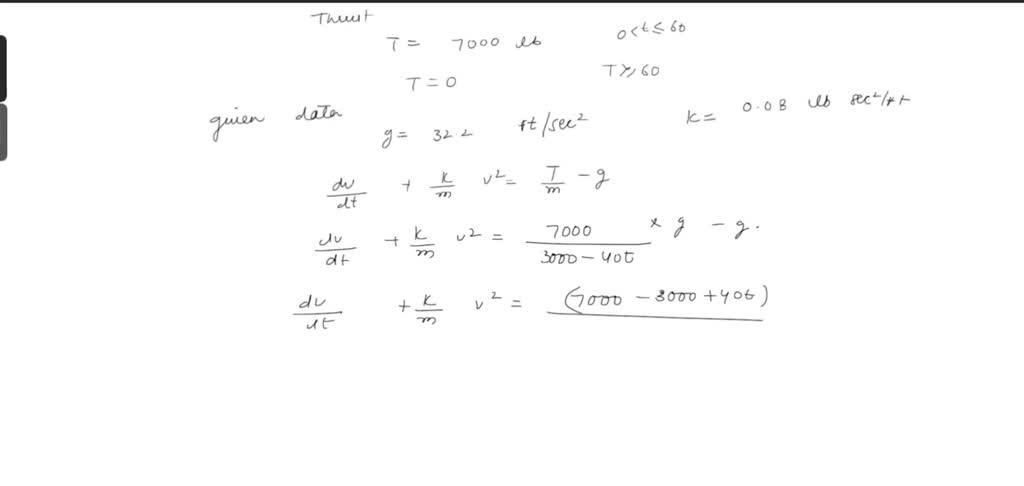 Thrust
T = 7000 lb 0<t≤60
T = 0 T≥60
given data
g = 32.2 ft/sec² k = 0.08 lb sec²/ft
dv/dt + k/m v² = T/m - g
dv/dt + k/m v² = 7000/(3000-40t) × g - g.
dv/dt + k/m v² = (7000 - 3000 + 40t)